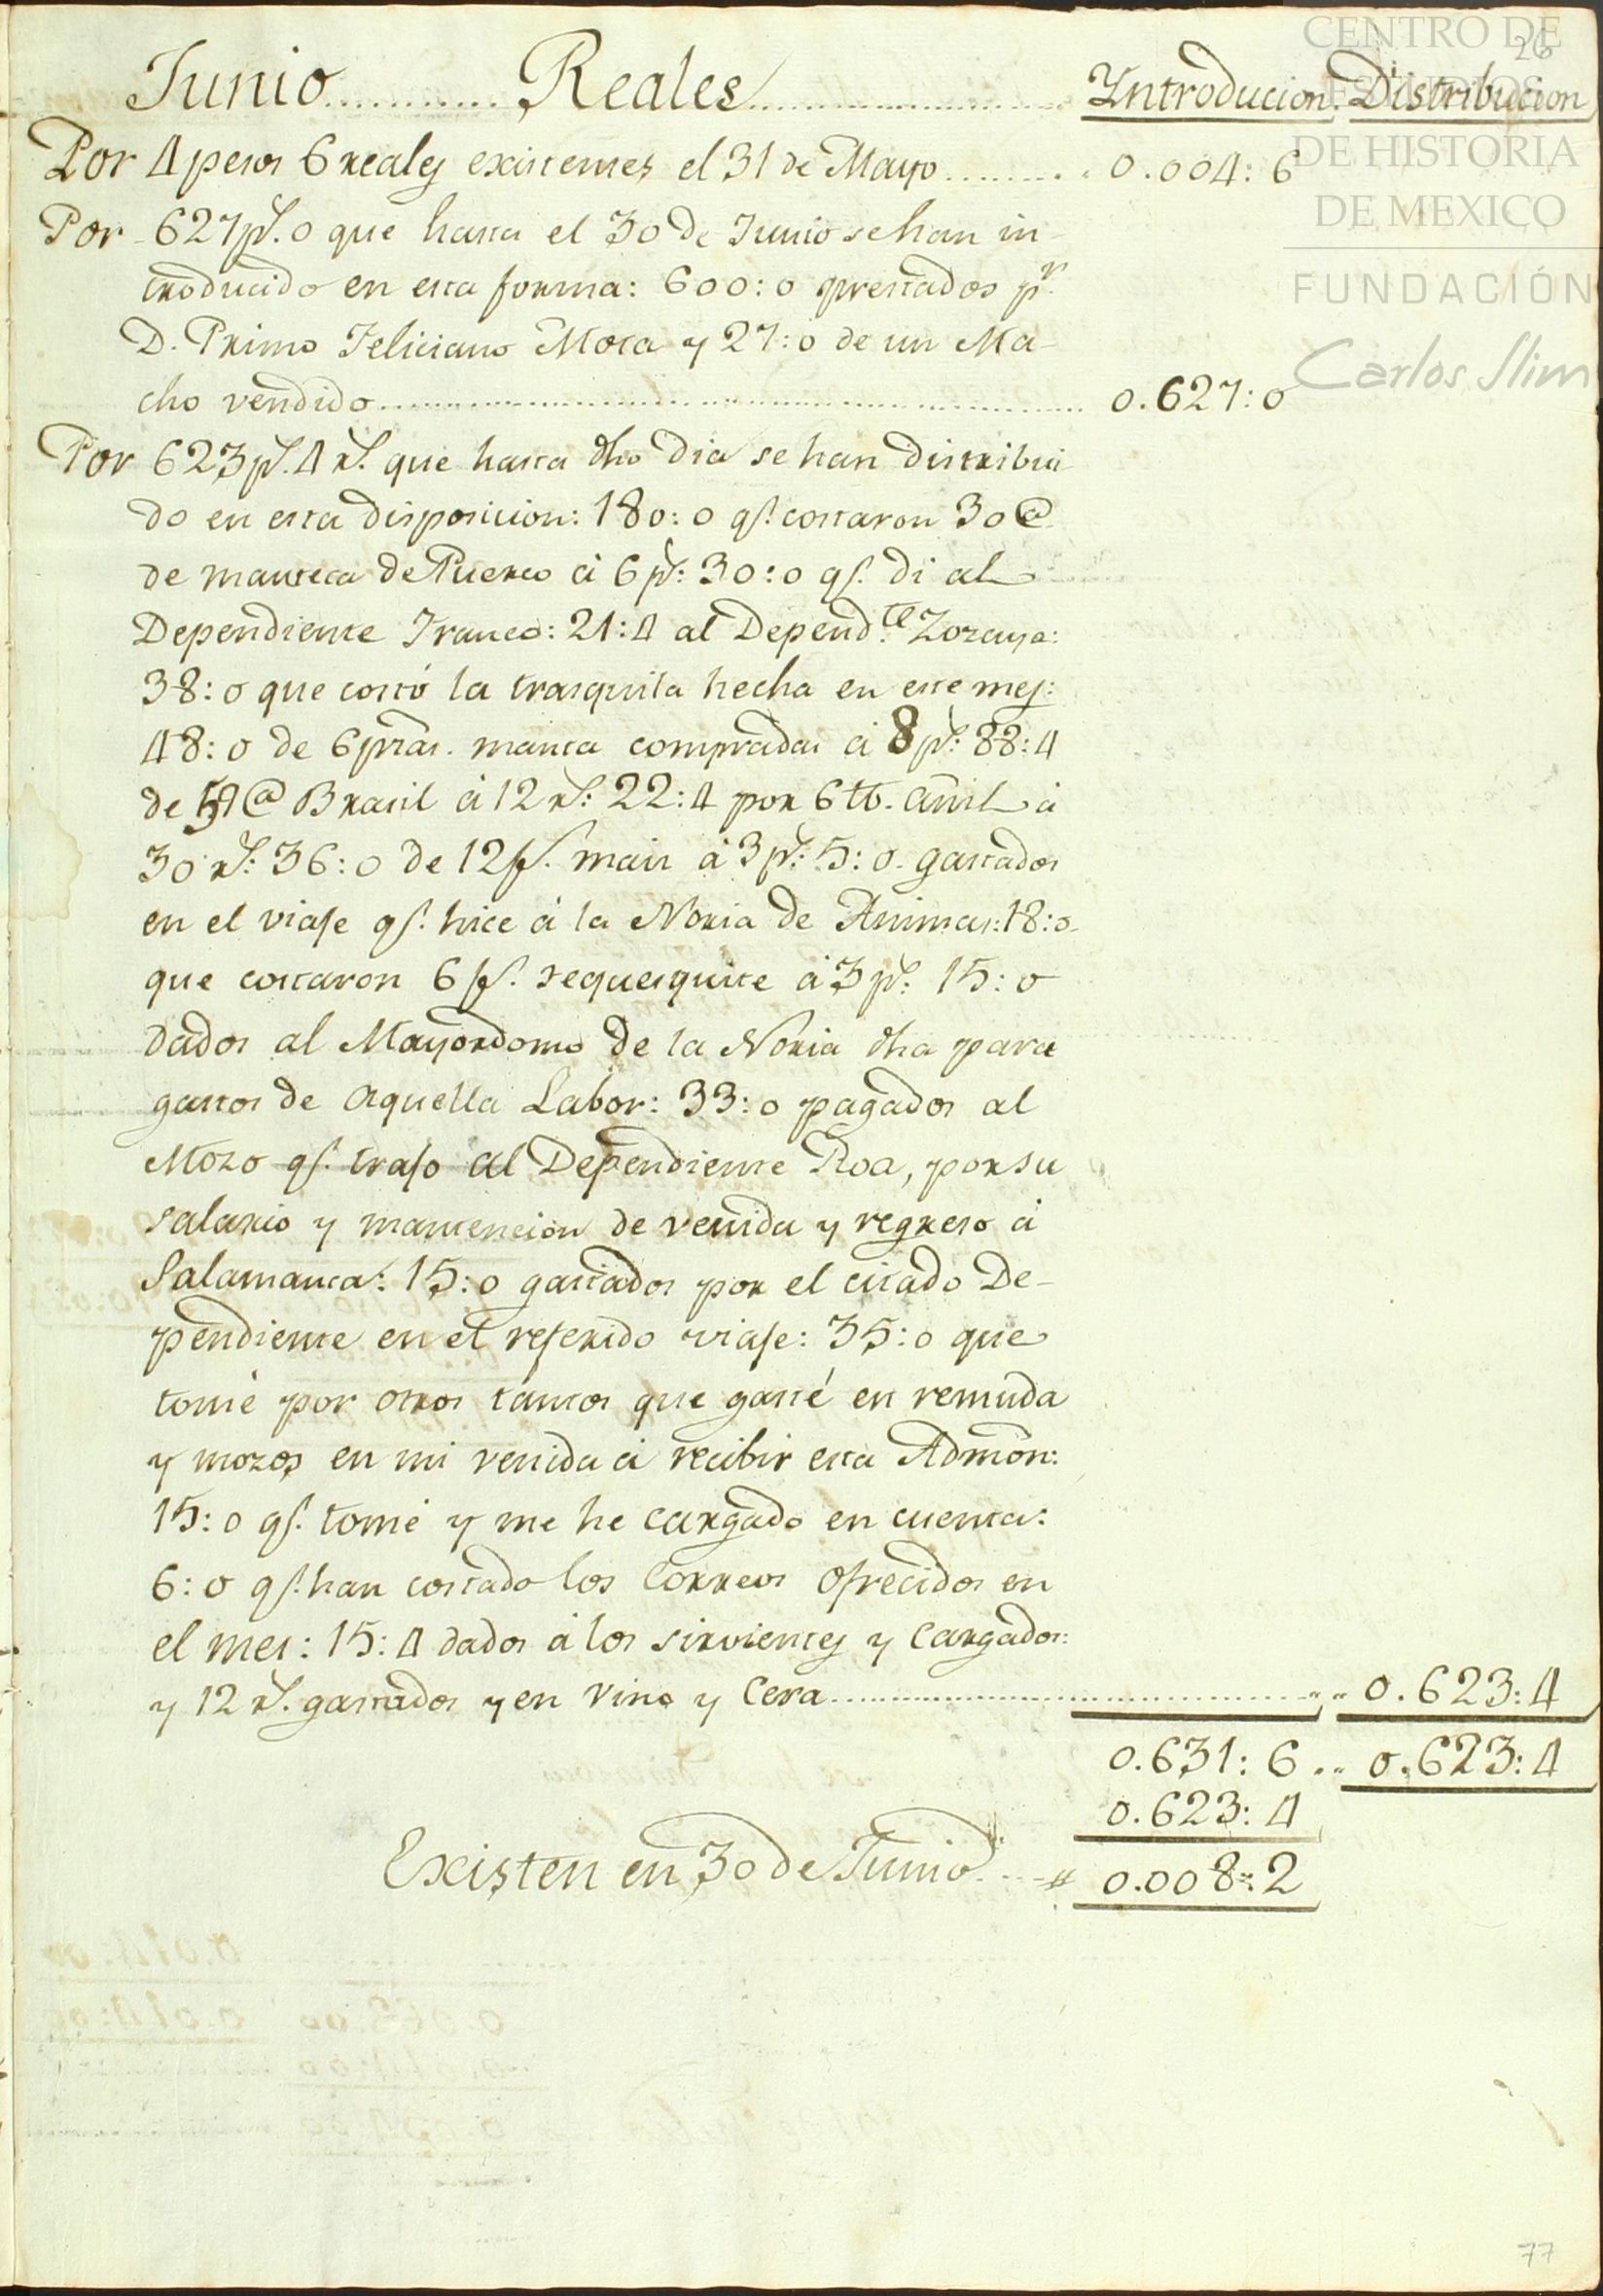 26
Junio........... Reales.......................... Yntroducion. Distribucion
Por 4 pesos 6 reales existentes el 31 de Mayo......... 0.004: 6
Por 627 p.s 0 que hasta el 30 de Junio se han in-
troducido en esta forma: 600: 0 prestados p.r
D. Primo Feliciano Mota y 27: 0 de un Ma-
cho vendido............................................ 0.627: 0
Por 623 p.s 4 r.s que hasta dho dia se han distribui
do en esta disposicion: 180: 0 q.e costaron 30 @
de manteca de Puerco á 6 p.s: 30: 0 q.e di al
Dependiente Franco: 21: 4 al Depend.te Zozaya:
38: 0 que costó la trasquila hecha en este mes:
48: 0 de 6 pzas. manta compradas á 8 p.s: 88: 4
de 59 @ Brasil á 12 r.s: 22: 4 por 6 lb. añil á
30 r.s: 36: 0 de 12 f.s mais á 3 p.s: 5: 0. gastados
en el viaje q.e hice á la Noria de Animas: 18: 0.
que costaron 6 f.s tequesquite á 3 p.s: 15: 0
dados al Mayordomo de la Noria dha para
gastos de aquella Labor: 33: 0 pagados al
Mozo q.e trajo al Dependiente Roa, por su
salario y mantencion de venida y regreso á
Salamanca: 15: 0 gastados por el citado De-
pendiente en el referido viaje: 35: 0 que
tomé por otros tantos que gasté en remuda
y mozos en mi venida á recibir esta Admon:
15: 0 q.e tomé y me he cargado en cuenta:
6: 0 q.e han costado los Correos ofrecidos en
el mes: 15: 4 dados á los sirvientes y Cargador:
y 12 r.s gastados y en vino y Cera........................ 0.623: 4
0.631: 6 .. 0.623: 4
0.623: 4
Existen en 30 de Junio.... # 0.008: 2
77
CENTRO DE
ESTUDIOS
DE HISTORIA
DE MEXICO
FUNDACIÓN
Carlos Slim